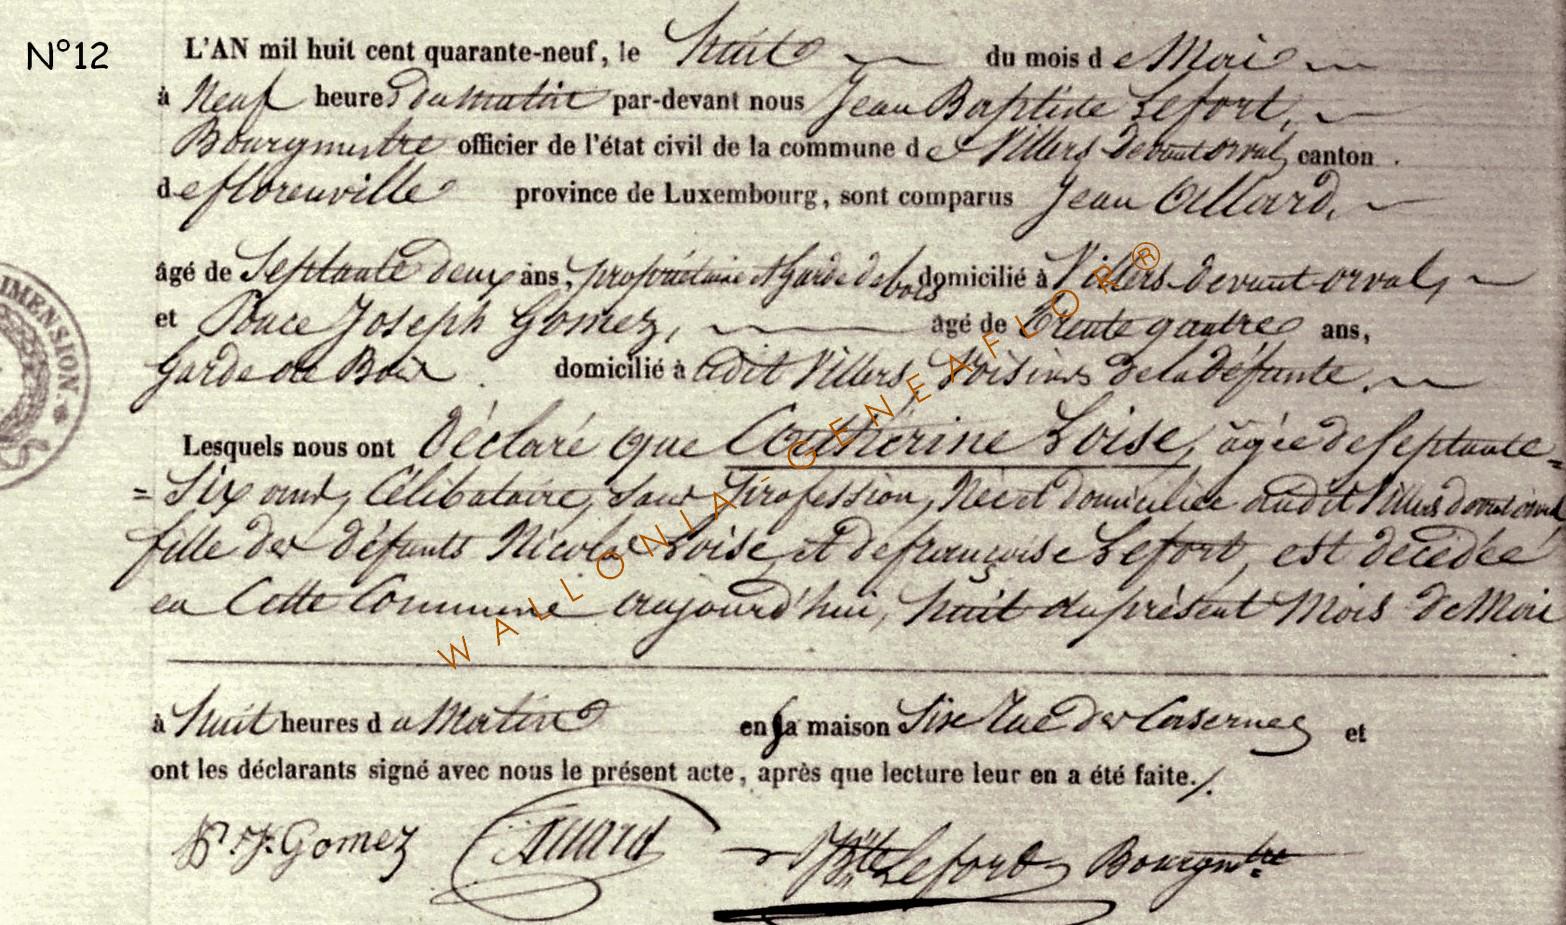 N°12
L'AN mil huit cent quarante-neuf, le huit du mois de Mai
à Neuf heures du matin par-devant nous Jean Baptiste Lefort,
Bourgmestre officier de l'état civil de la commune de Villers devant orval, canton
de florenville province de Luxembourg, sont comparus Jean Allard,
âgé de Septante deux ans, propriétaire et garde de bois domicilié à Villers-devant-orval,
et Ponce Joseph Gomez, âgé de trente quatre ans,
garde de Bois domicilié à dit Villers, Voisins de la défunte,
Lesquels nous ont Déclaré que Catherine Loise, âgée de Septante=
=Six ans, Célibataire, sans profession, Née et domiciliée audit Villers devant orval
fille des défunts Nicolas Loise, et de françoise Lefort, est décédée
en Cette Commune aujourd'hui, huit du présent Mois de Mai
à huit heures du Matin en sa maison Sise Rue des Casernes et
ont les déclarants signé avec nous le présent acte, après que lecture leur en a été faite./.
P. J. Gomez Allard JBte Lefort Bourgmtre
IMENSION.
WALLONIA-GENEAFLOR®